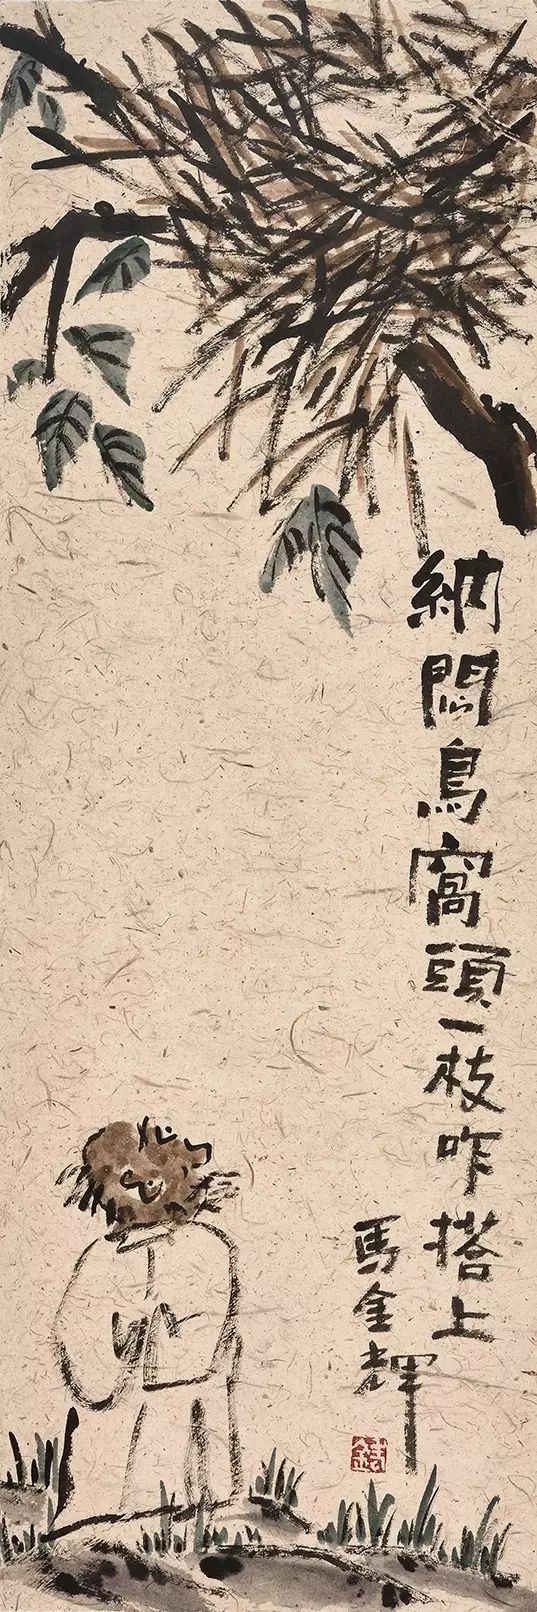 納悶鳥窩頭一枝咋搭上
馬金輝